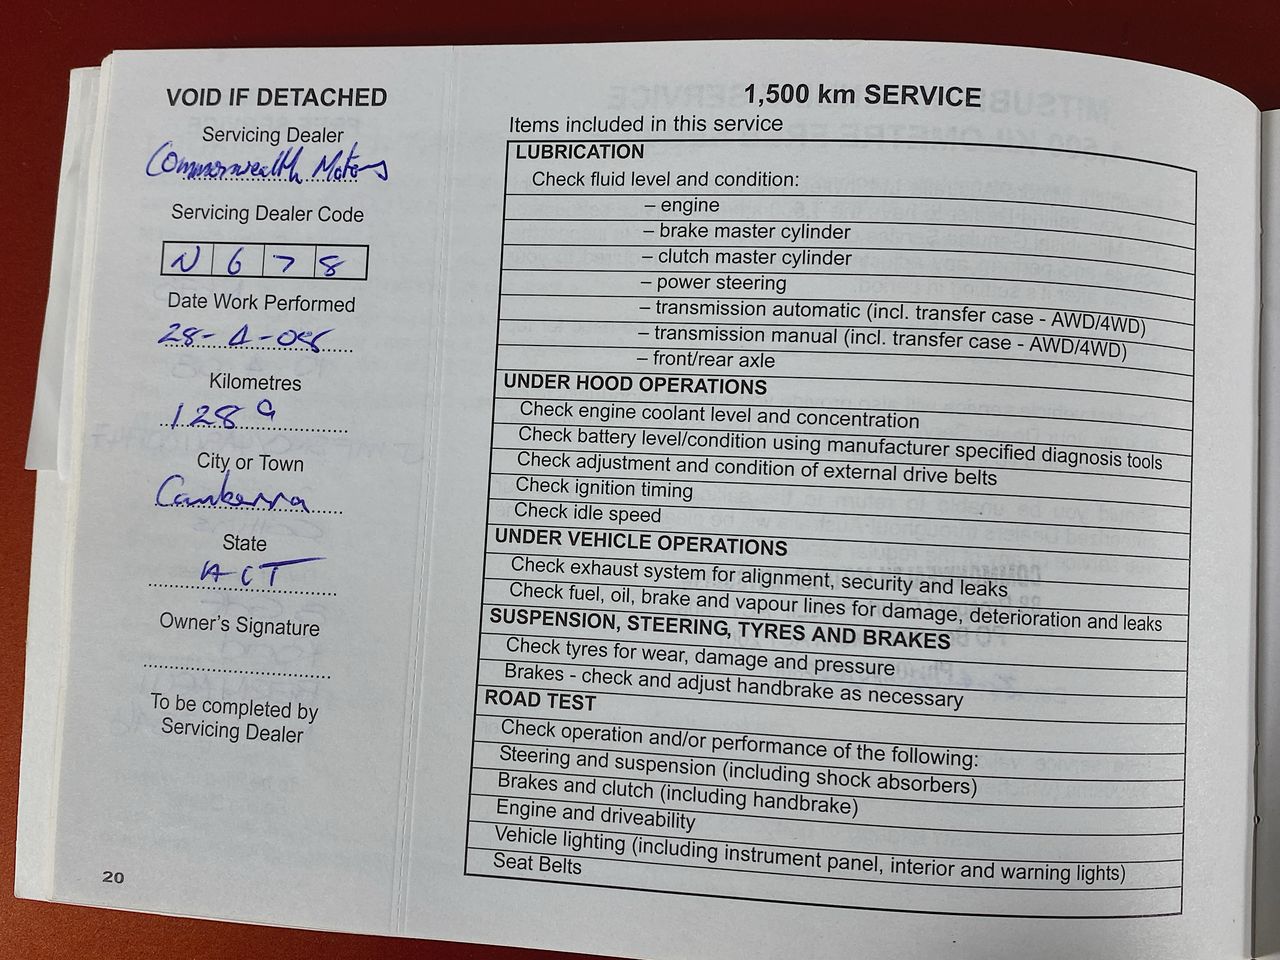 VOID IF DETACHED
Servicing Dealer
Commonwealth Motors
Servicing Dealer Code
N 6 7 8
Date Work Performed
28-4-08
Kilometres
1289
City or Town
Canberra
State
ACT
Owner's Signature
To be completed by
Servicing Dealer
20
1,500 km SERVICE
Items included in this service
LUBRICATION
Check fluid level and condition:
– engine
– brake master cylinder
– clutch master cylinder
– power steering
– transmission automatic (incl. transfer case - AWD/4WD)
– transmission manual (incl. transfer case - AWD/4WD)
– front/rear axle
UNDER HOOD OPERATIONS
Check engine coolant level and concentration
Check battery level/condition using manufacturer specified diagnosis tools
Check adjustment and condition of external drive belts
Check ignition timing
Check idle speed
UNDER VEHICLE OPERATIONS
Check exhaust system for alignment, security and leaks
Check fuel, oil, brake and vapour lines for damage, deterioration and leaks
SUSPENSION, STEERING, TYRES AND BRAKES
Check tyres for wear, damage and pressure
Brakes - check and adjust handbrake as necessary
ROAD TEST
Check operation and/or performance of the following:
Steering and suspension (including shock absorbers)
Brakes and clutch (including handbrake)
Engine and driveability
Vehicle lighting (including instrument panel, interior and warning lights)
Seat Belts